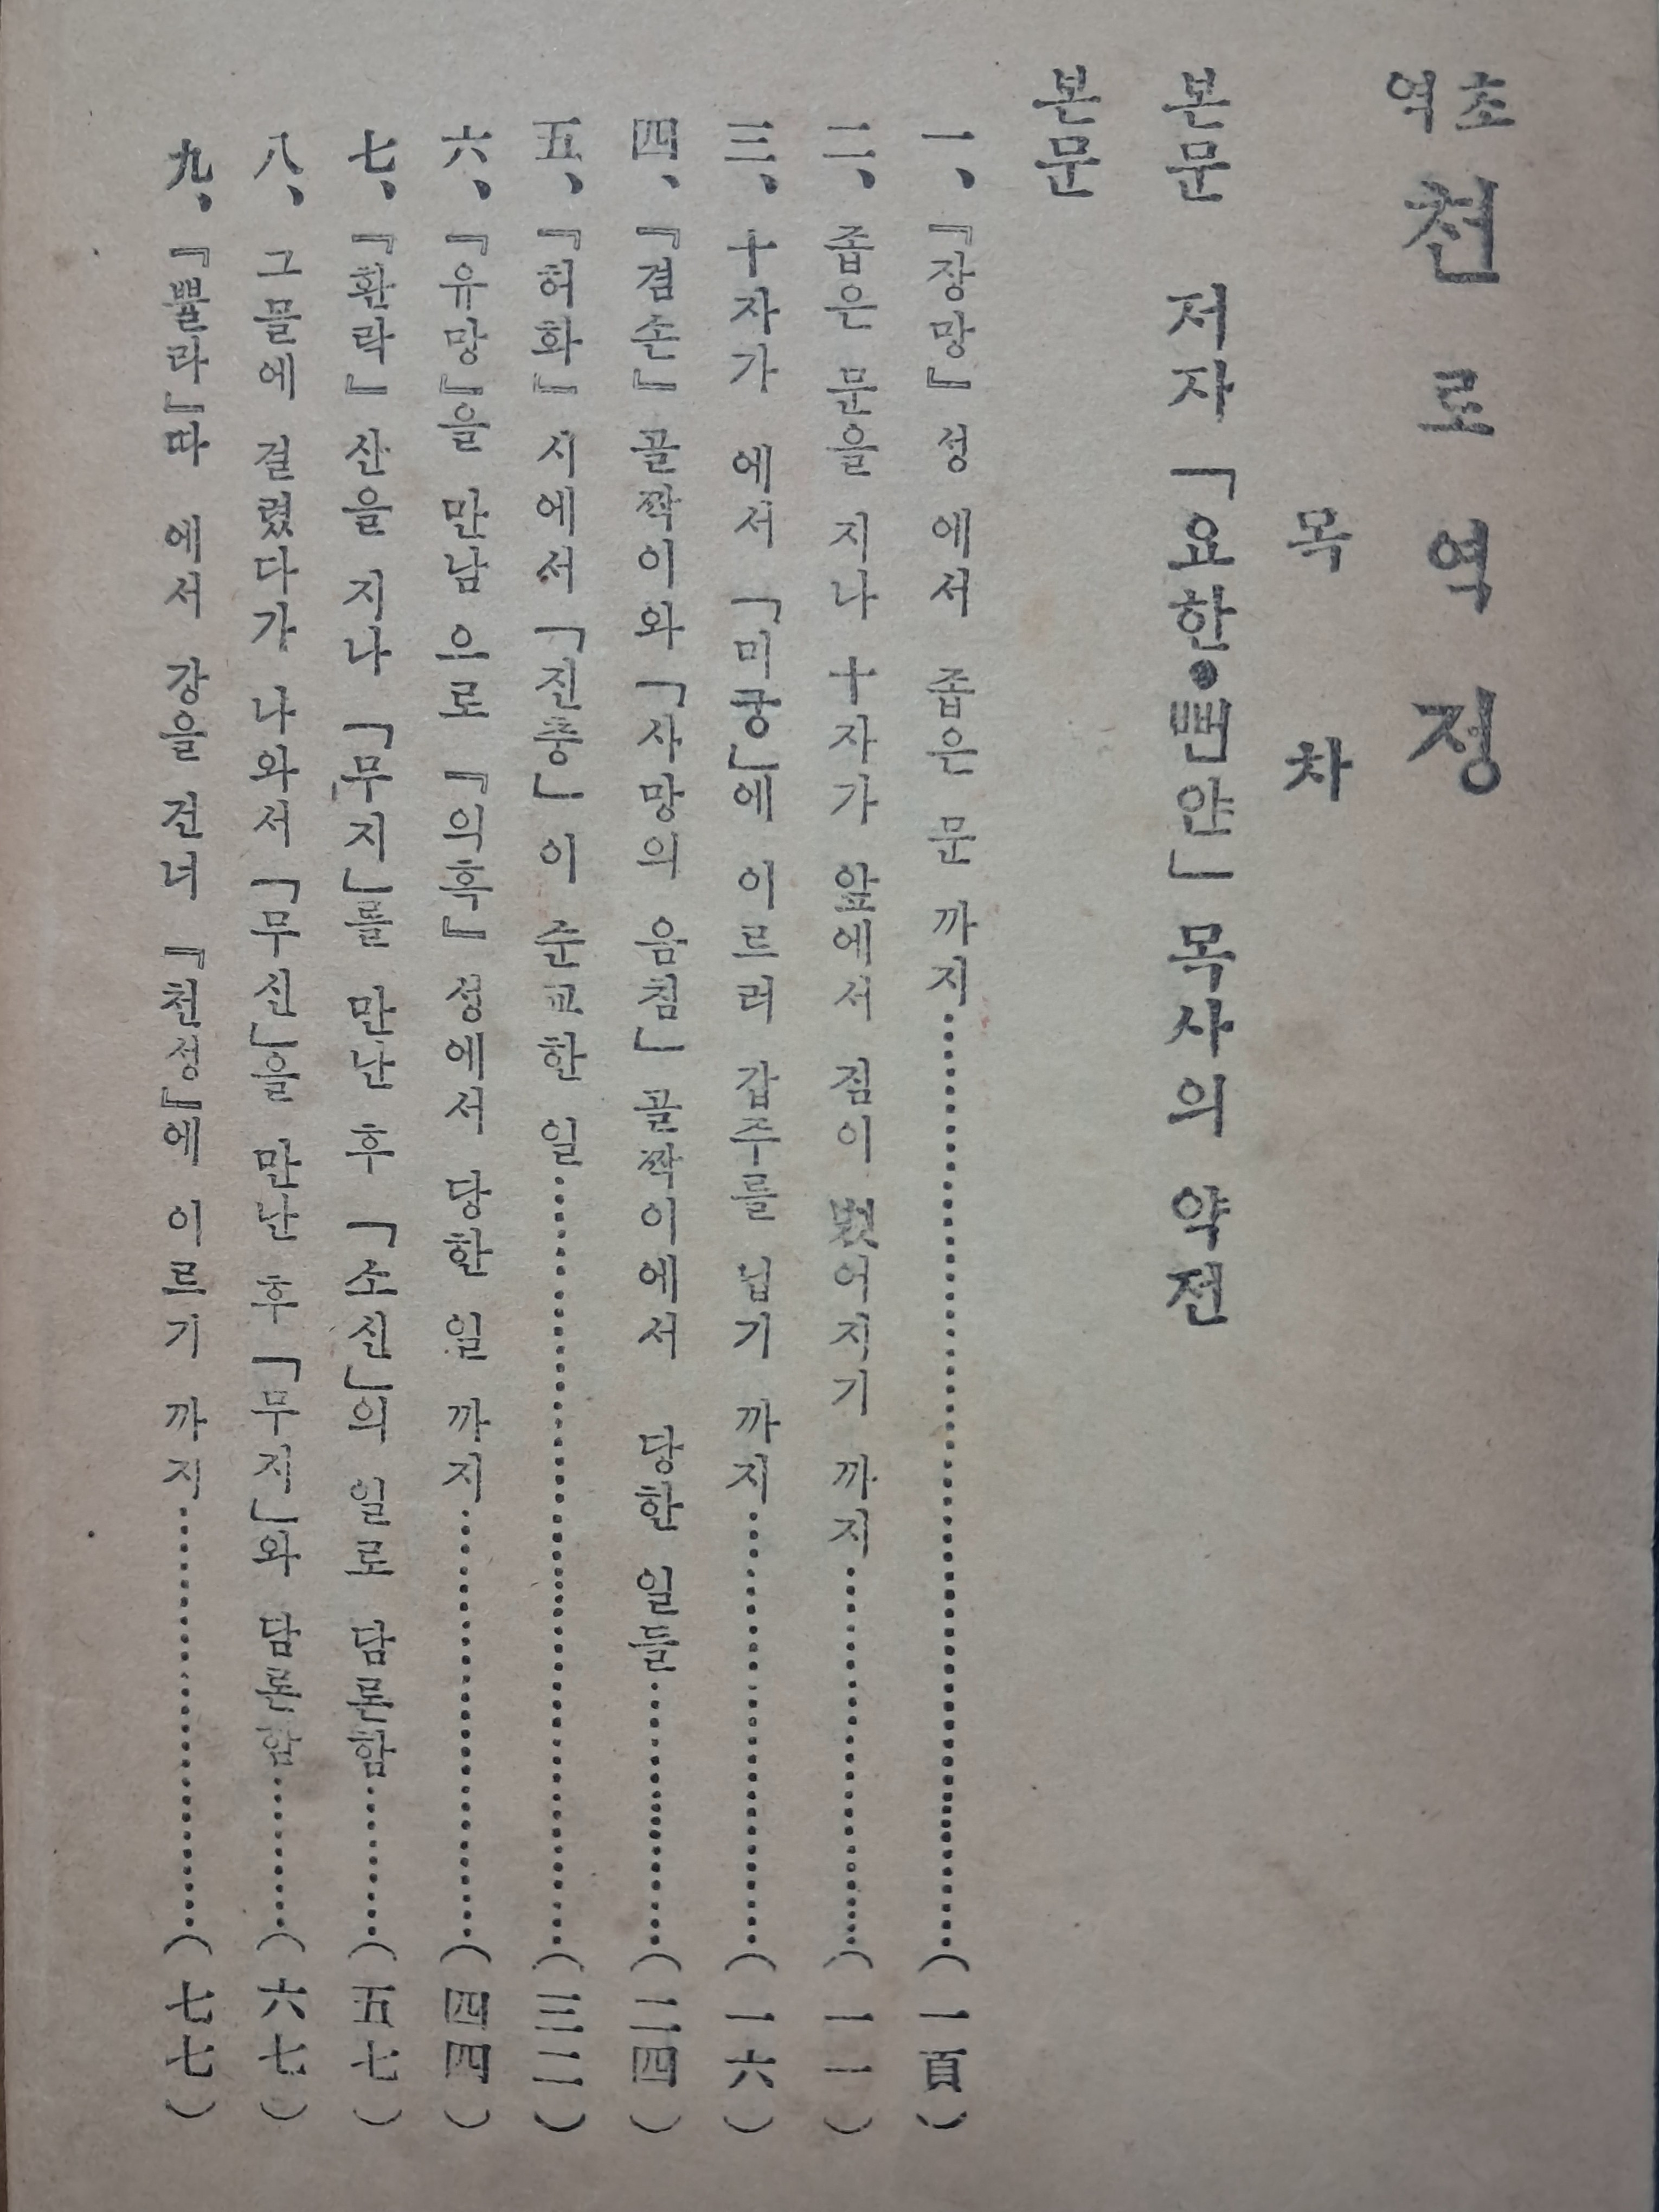 초역 천로역정
목차
본문 저자 「요한•뻔얀」 목사의 약전
본문
一、『장망』성 에서 좁은 문 까지……(一頁)
二、좁은 문을 지나 十자가 앞에서 짐이 벗어지기 까지……(一一)
三、十자가 에서 「미궁」에 이르러 갑주를 닙기 까지……(一六)
四、『겸손』골짝이와 「사망의 음침」 골짝이에서 당한 일들……(二四)
五、『허화』시에서 「진충」이 순교한 일……(三二)
六、『유망』을 만남 으로 『의혹』성에서 당한 일 까지……(四四)
七、『환락』산을 지나 「무지」를 만난 후 「소신」의 일로 담론함……(五七)
八、그물에 걸렸다가 나와서 「무신」을 만난 후 「무지」와 담론함……(六七)
九、『뿔라』따 에서 강을 건너 『천성』에 이르기 까지……(七七)